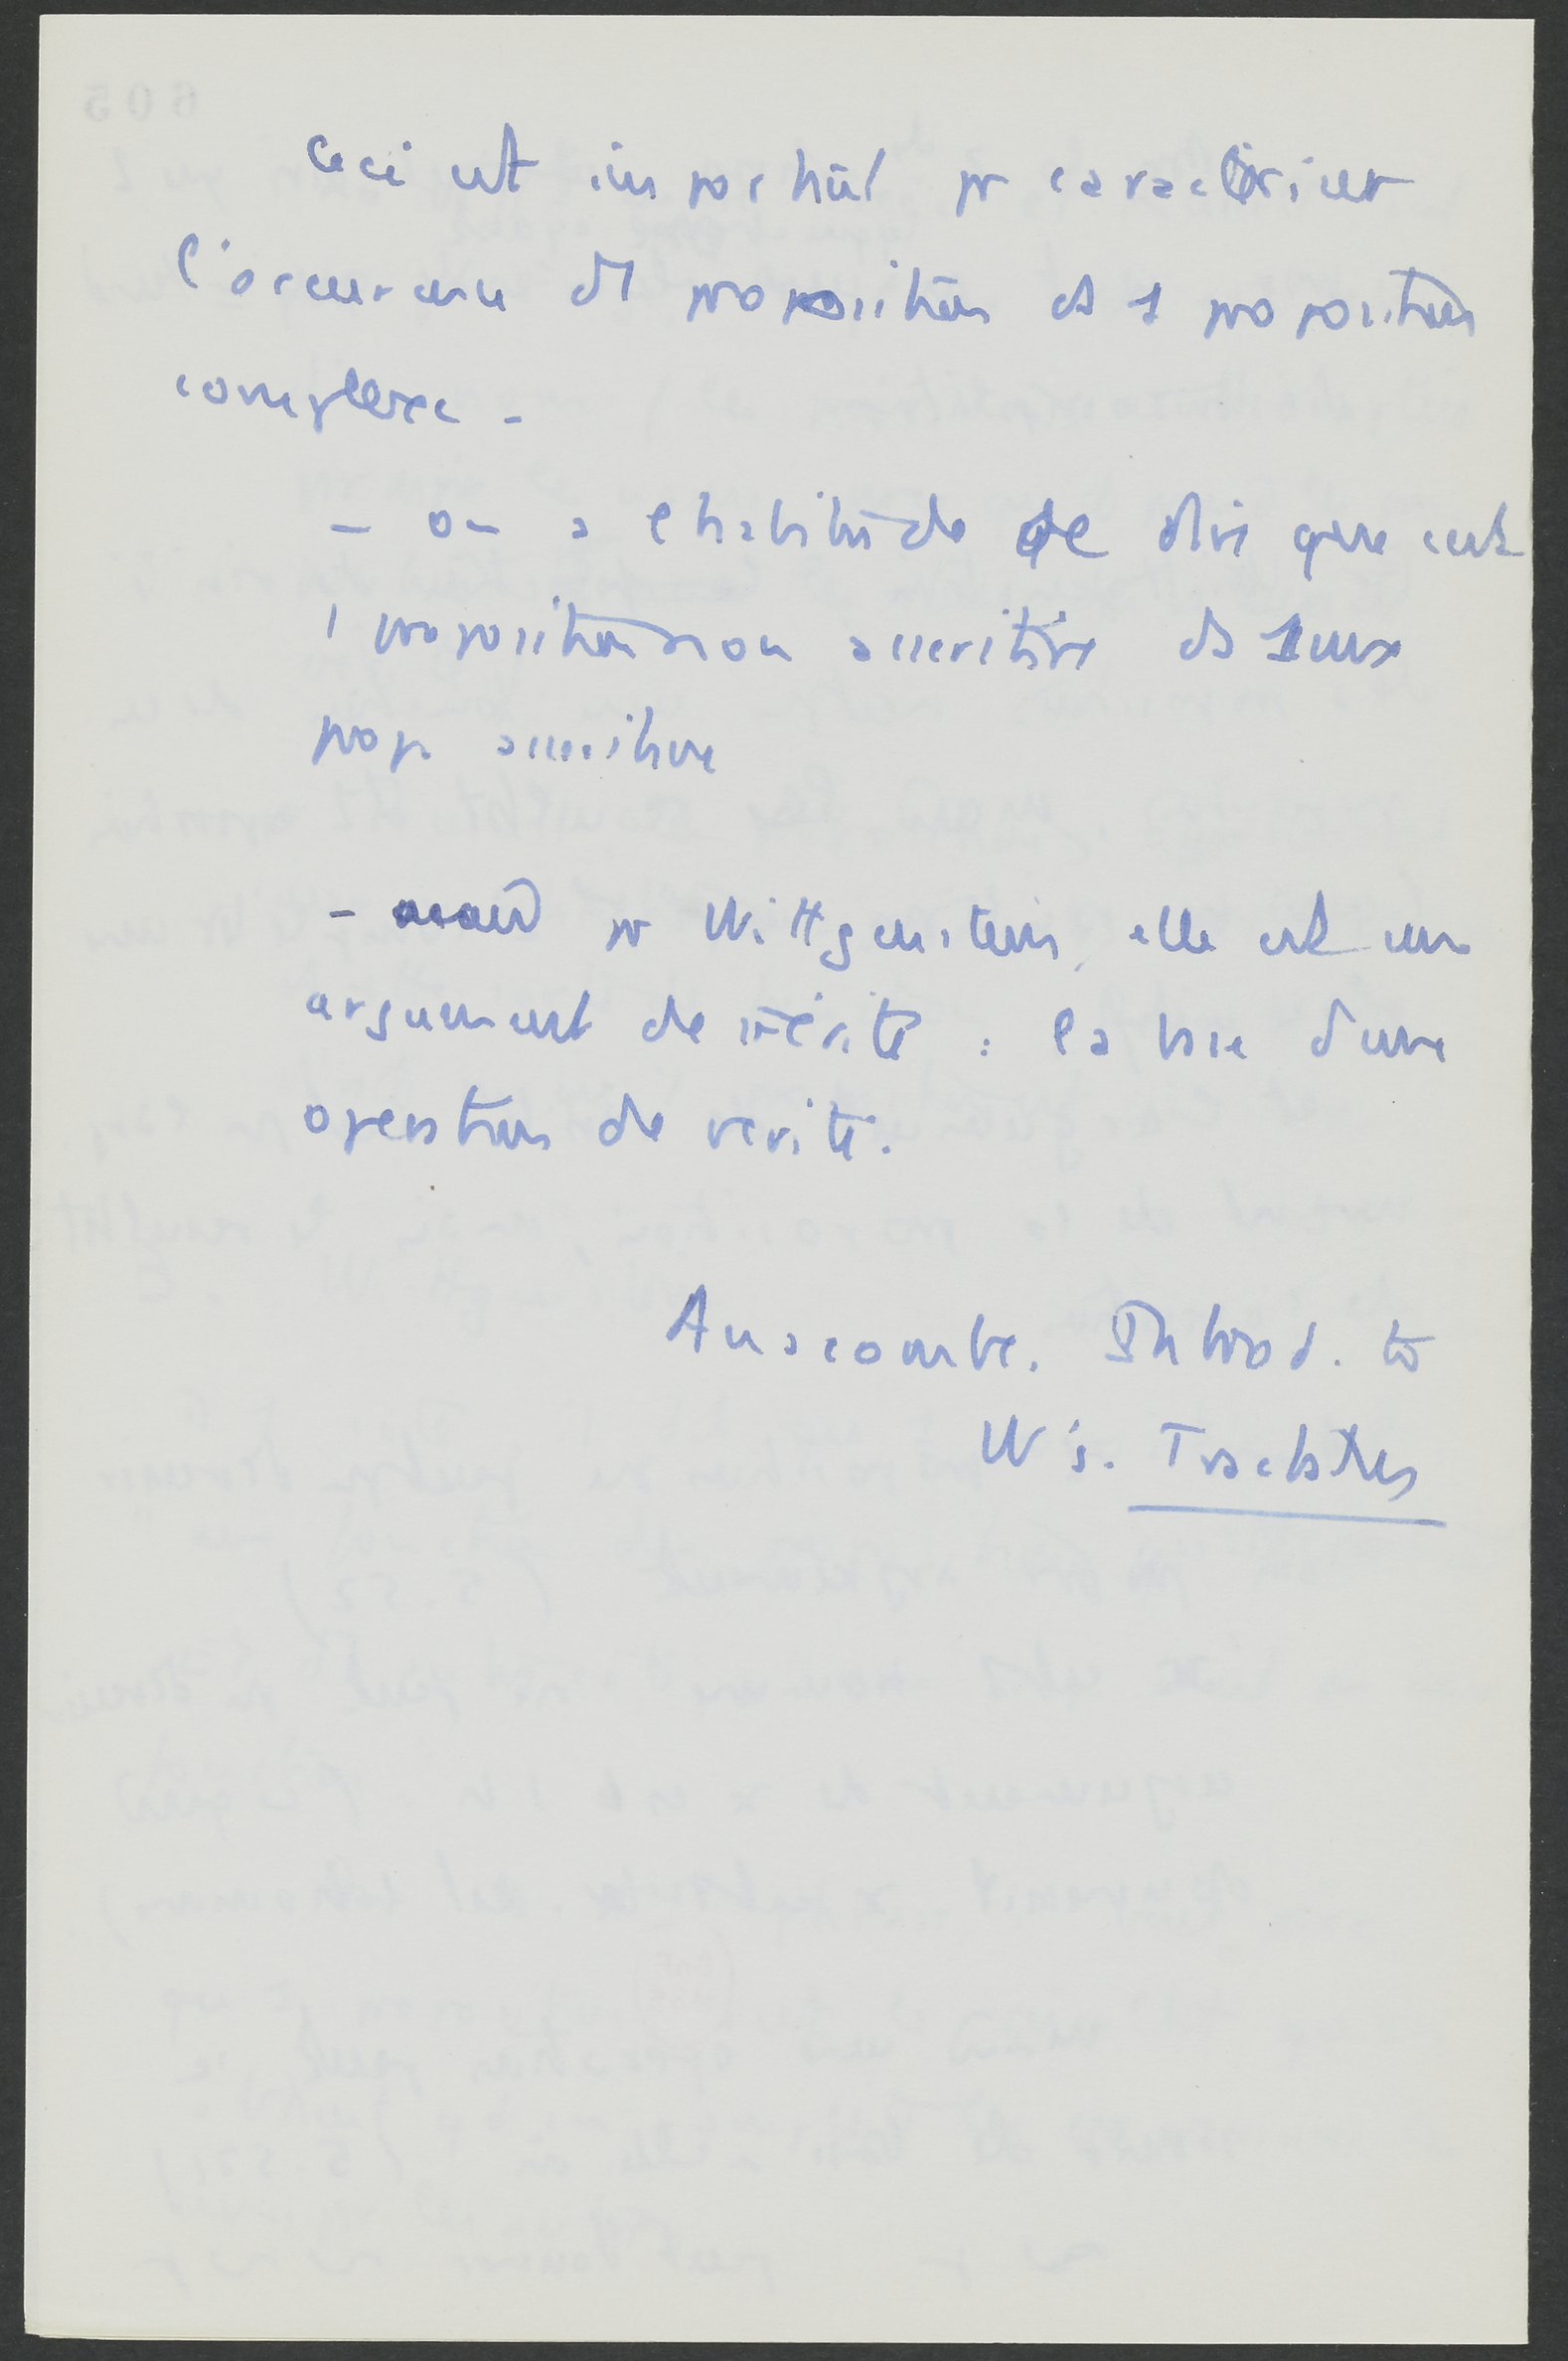 Ceci est important pr caractériser
l'occurrence d1 proposition ds 1 proposition
complexe.
- on a l'habitude de dire que c'est
1 proposition non assertive ds 1
prop. assertive
- pr Wittgenstein, elle est un
argument de vérité : la base d'une
operation de verité.
Anscombe. Introd. to
W's. Tractatus